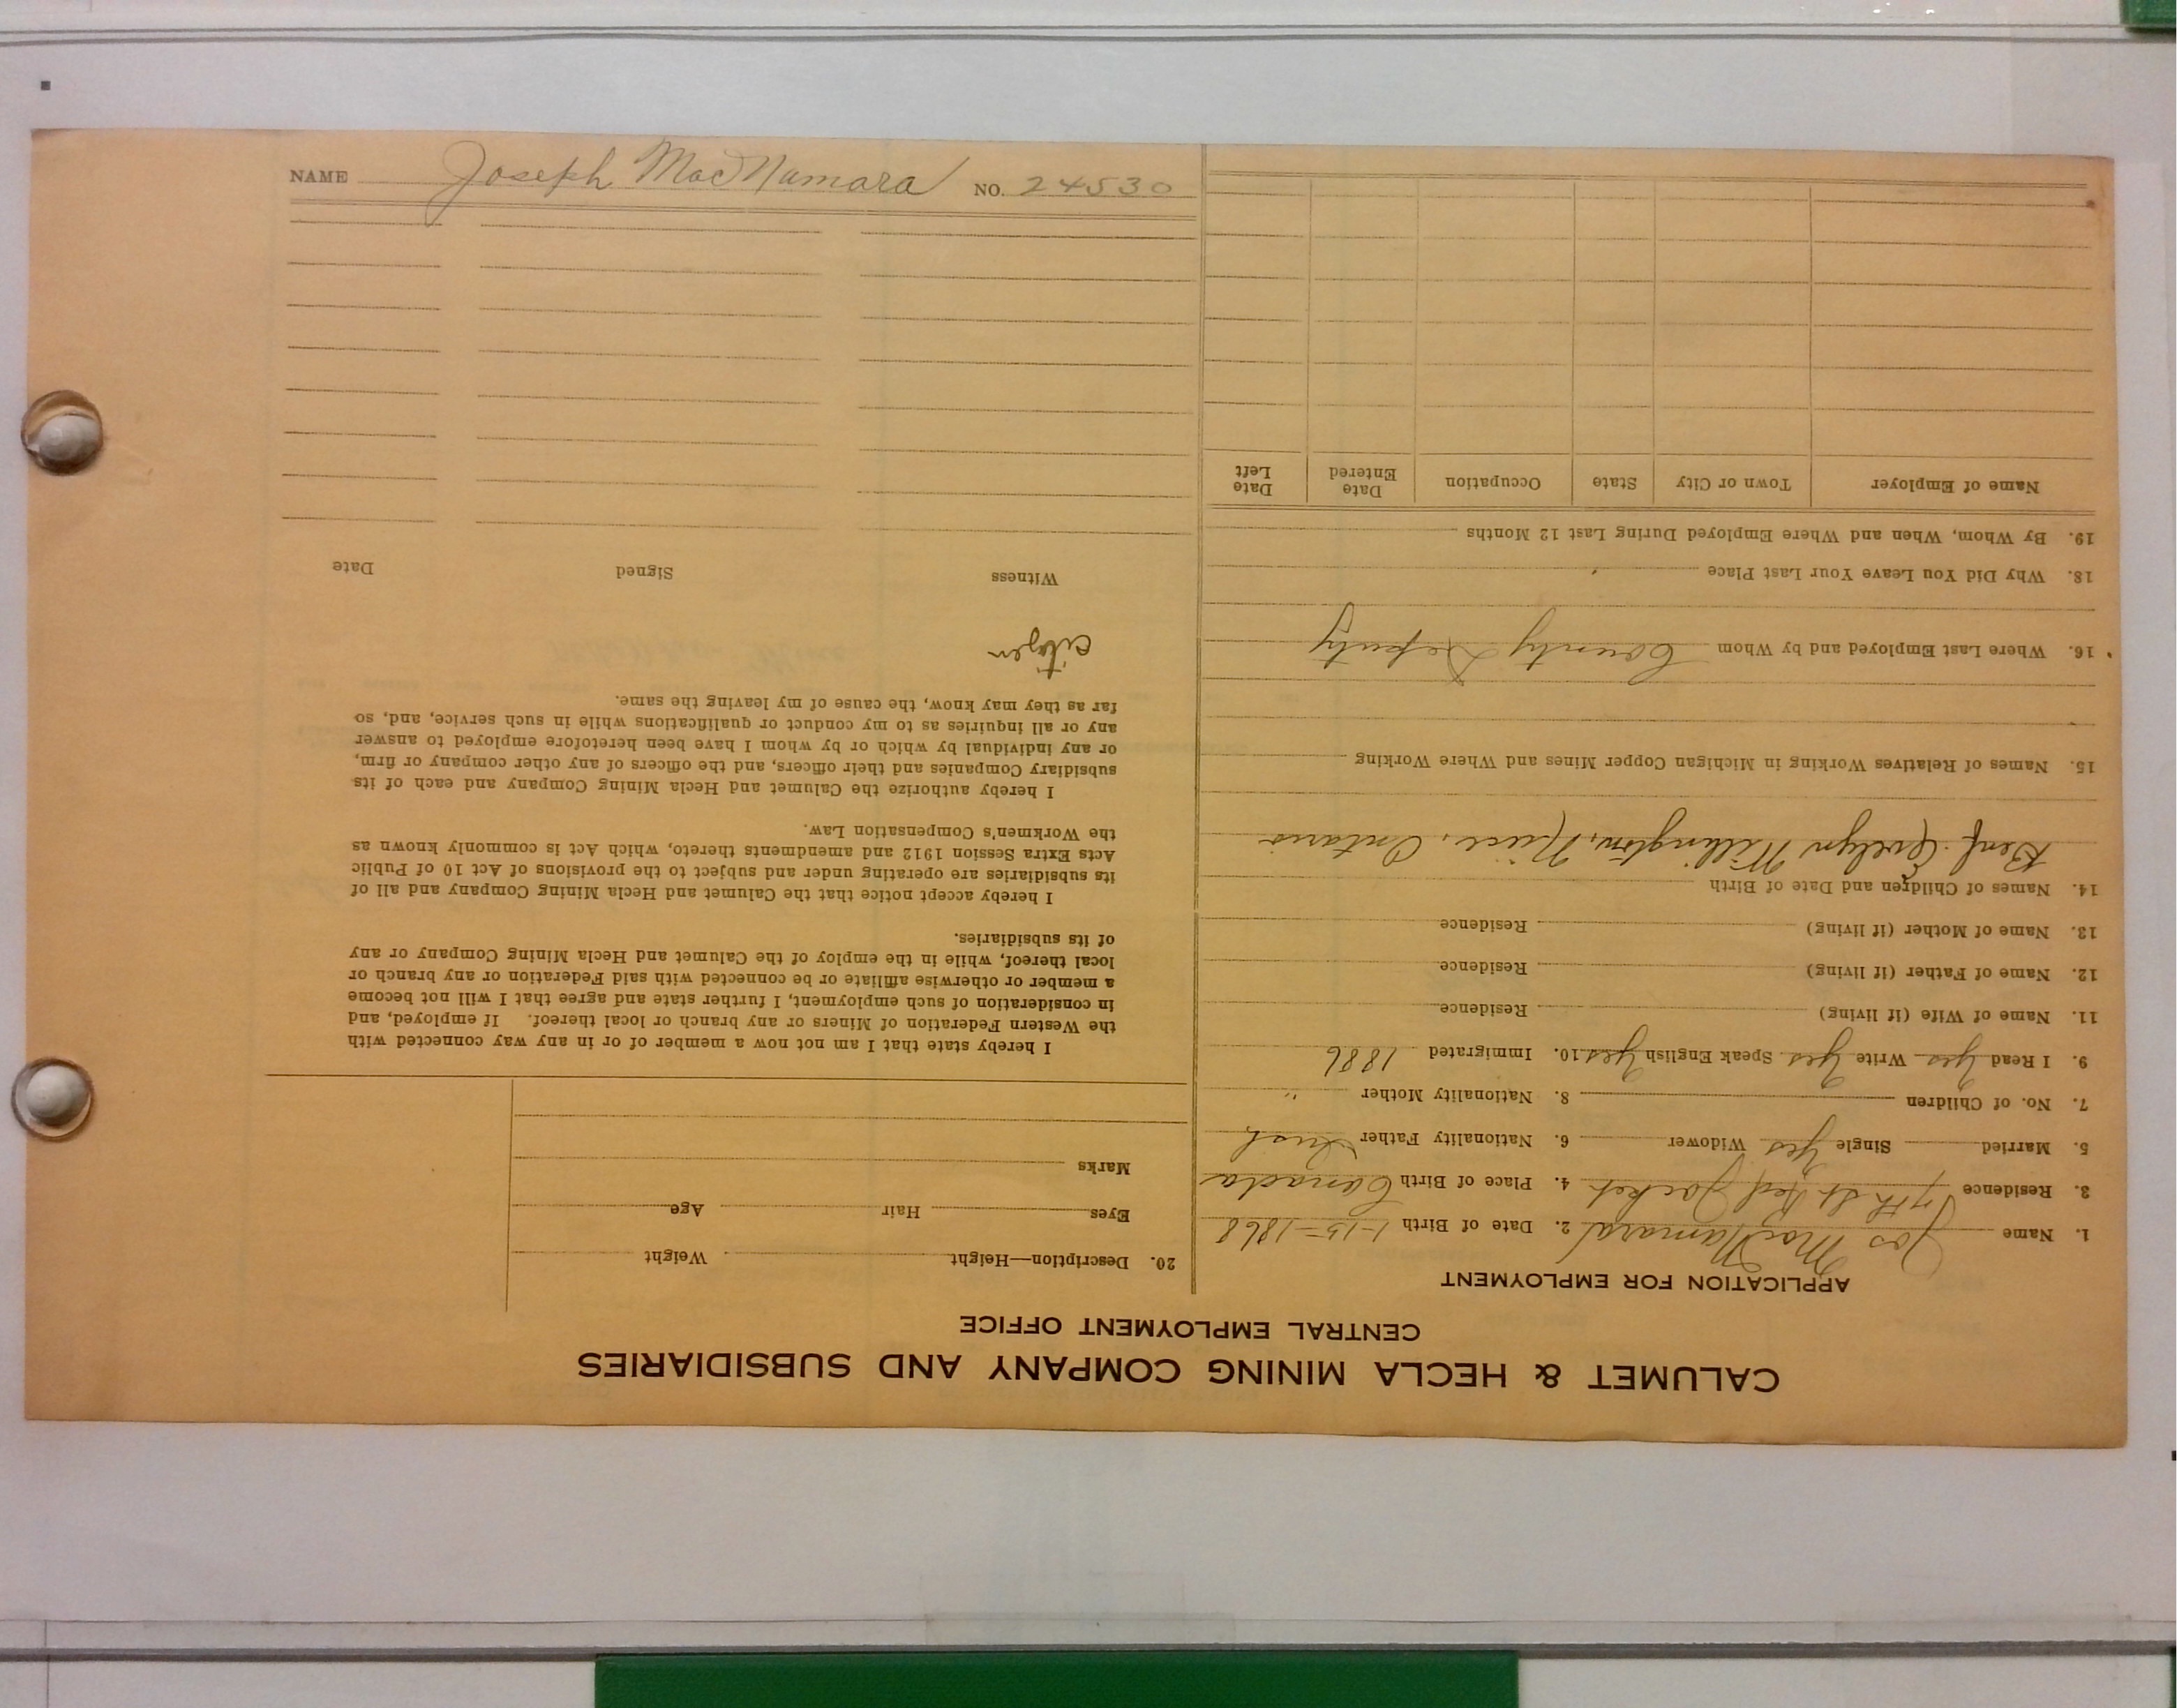 CALUMET & HECLA MINING COMPANY AND SUBSIDIARIES
CENTRAL EMPLOYMENT OFFICE
APPLICATION FOR EMPLOYMENT
1. Name Jos MacNamara 2. Date of Birth 1-15-1868
3. Residence 7th St Red Jacket 4. Place of Birth Canada
5. Married Single Yes Widower 6. Nationality Father Irish
7. No. of Children 8. Nationality Mother "
9. I Read Yes Write Yes Speak English Yes 10. Immigrated 1886
11. Name of Wife (if living) Residence
12. Name of Father (if living) Residence
13. Name of Mother (if living) Residence
14. Names of Children and Date of Birth
Benf. Evelyn Millington, Niece, Ontario
15. Names of Relatives Working in Michigan Copper Mines and Where Working
16. Where Last Employed and by Whom County Deputy
18. Why Did You Leave Your Last Place
19. By Whom, When and Where Employed During Last 12 Months
Name of Employer Town or City State Occupation Date Entered Date Left
20. Description—Height Weight
Eyes Hair Age
Marks
I hereby state that I am not now a member of or in any way connected with
the Western Federation of Miners or any branch or local thereof. If employed, and
in consideration of such employment, I further state and agree that I will not become
a member or otherwise affiliate or be connected with said Federation or any branch or
local thereof, while in the employ of the Calumet and Hecla Mining Company or any
of its subsidiaries.
I hereby accept notice that the Calumet and Hecla Mining Company and all of
its subsidiaries are operating under and subject to the provisions of Act 10 of Public
Acts Extra Session 1912 and amendments thereto, which Act is commonly known as
the Workmen's Compensation Law.
I hereby authorize the Calumet and Hecla Mining Company and each of its
subsidiary Companies and their officers, and the officers of any other company or firm,
or any individual by which or by whom I have been heretofore employed to answer
any or all inquiries as to my conduct or qualifications while in such service, and, so
far as they may know, the cause of my leaving the same.
citizen
Witness Signed Date
NAME Joseph MacNamara NO. 24530